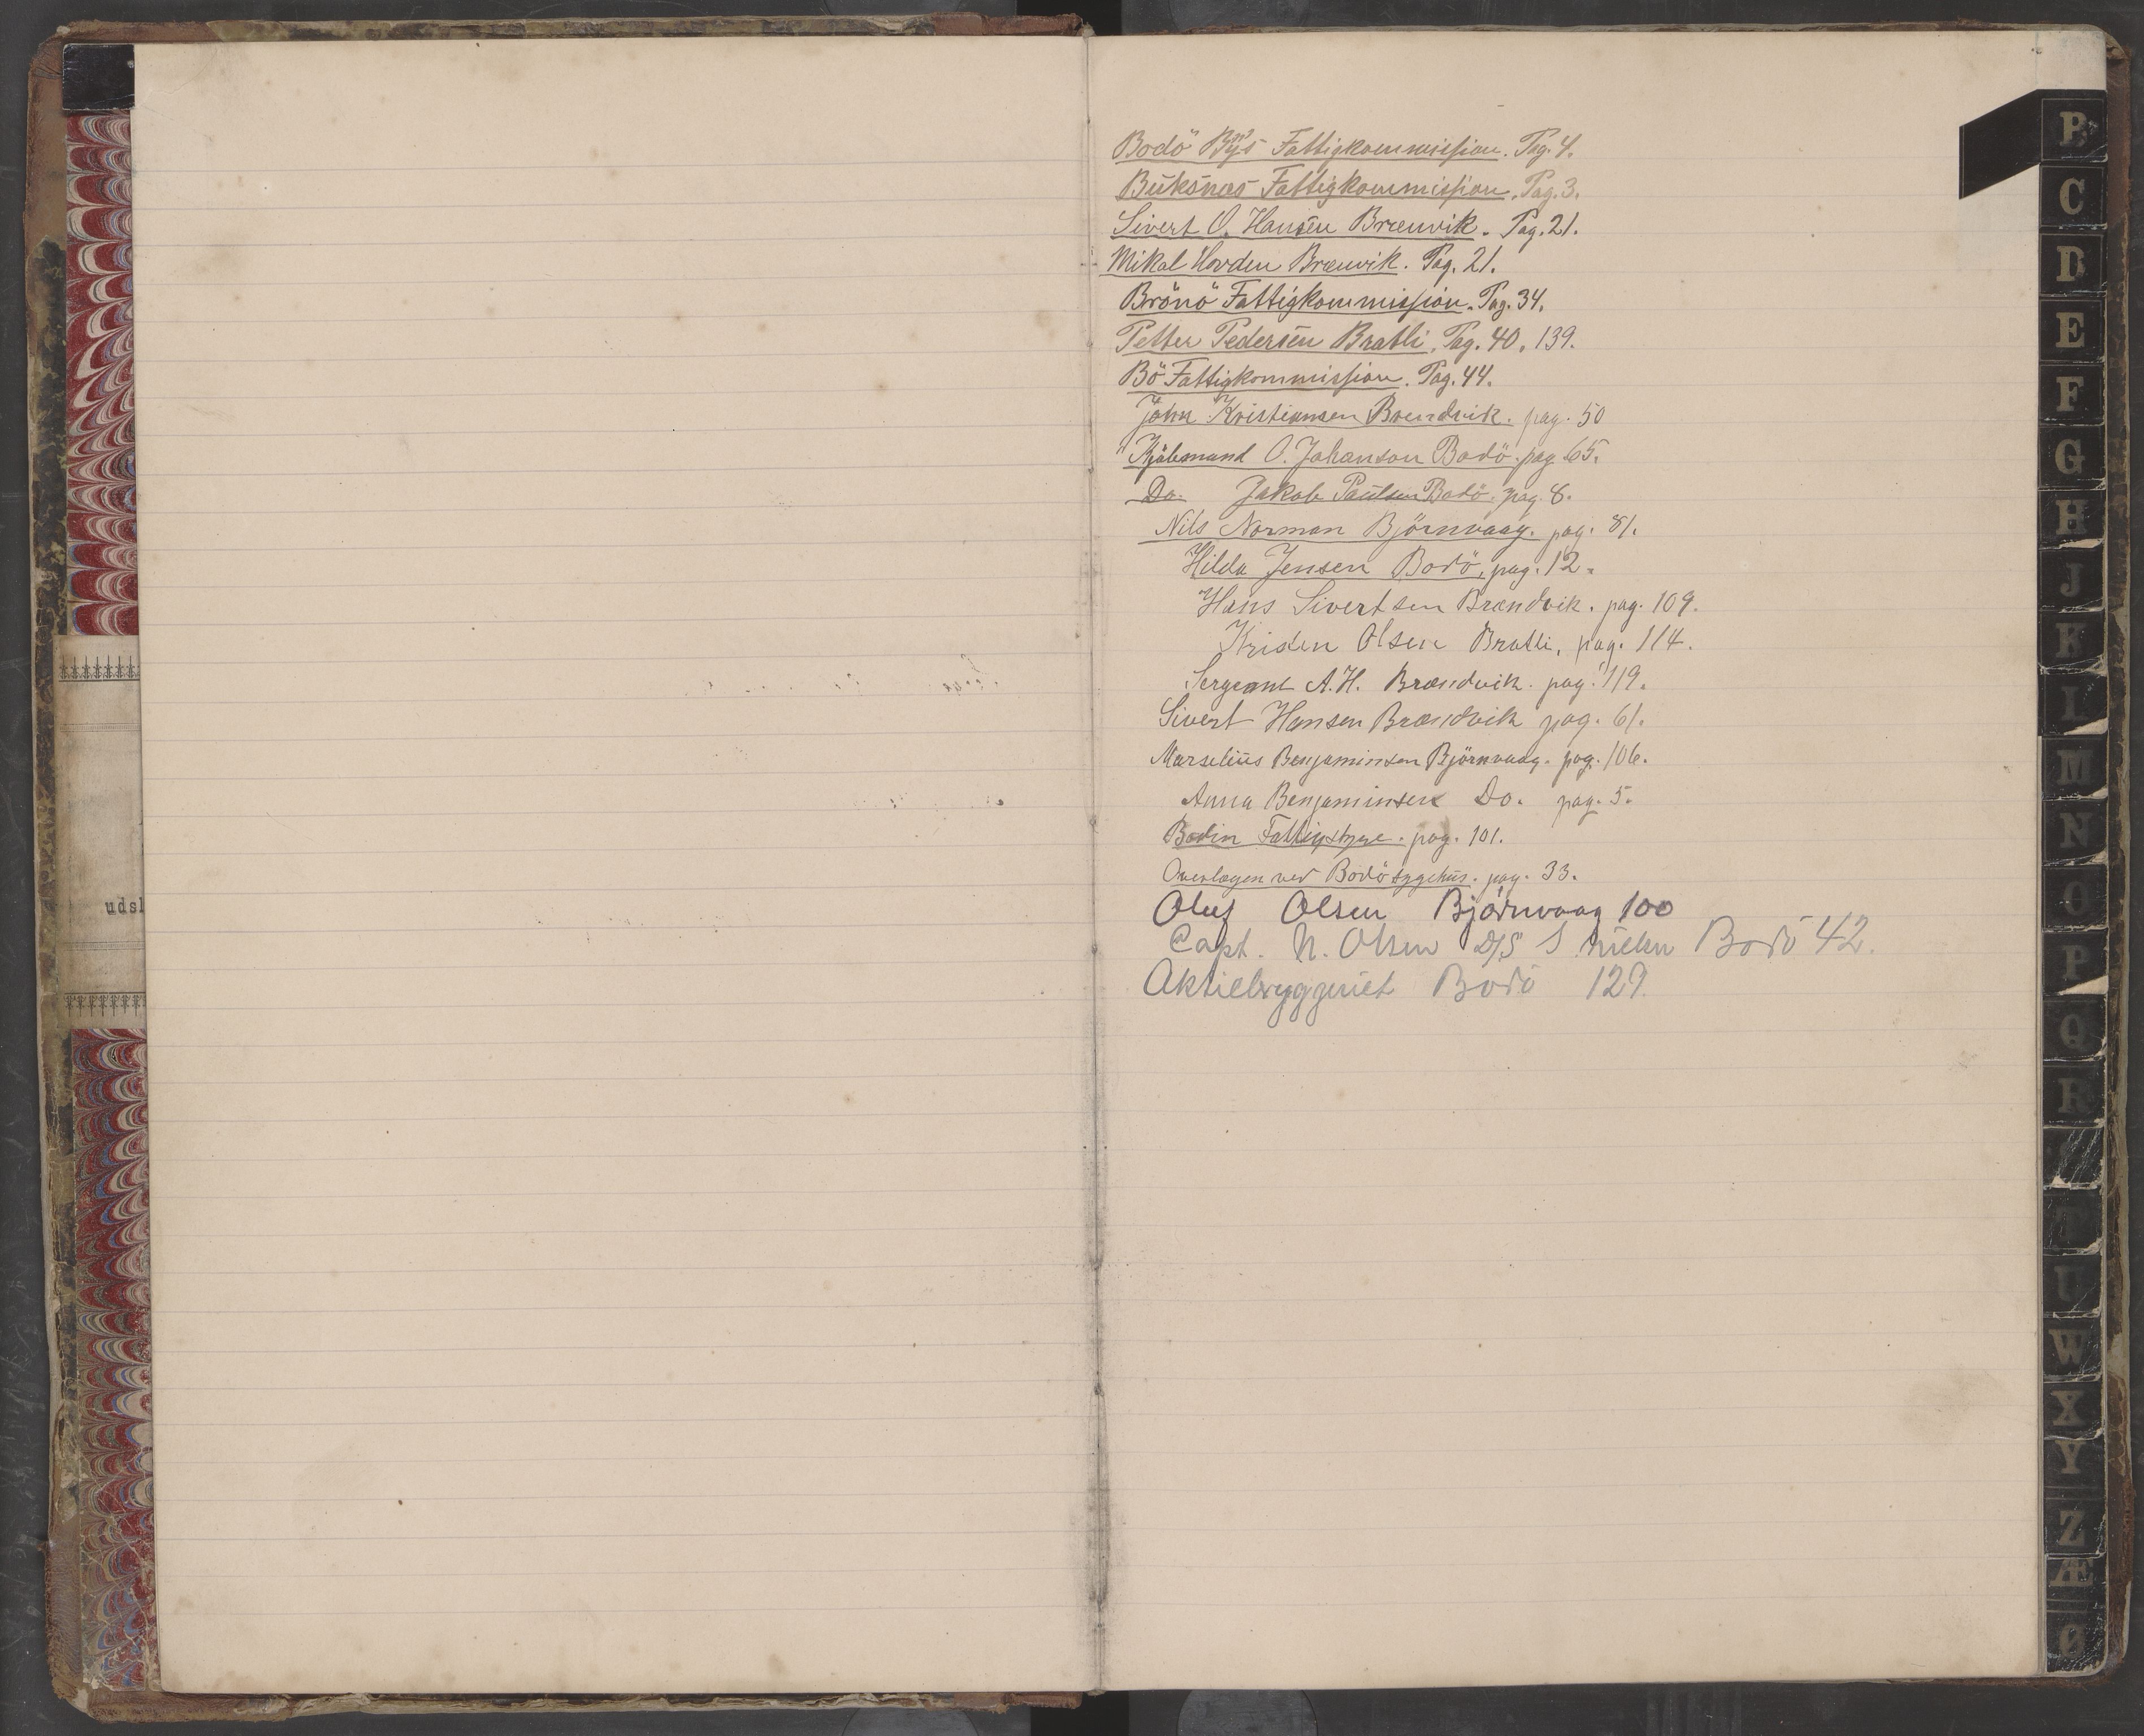 Bodö Bys Fattigkommission. Pag. 4.
Buksnæs Fattigkommission. Pag. 3.
Sivert O. Hansen Brænvik. Pag. 21.
Mikal Hovden Brænvik. Pag. 21.
Brönö Fattigkommission. Pag. 34.
Petter Pedersen Bratli, Pag. 40, 139.
Bö Fattigkommission. Pag. 44.
John Kristiansen Brendvik. pag. 50
Kjöbmand O. Johanson Bodö. pag 65.
Do. Jakob Paulsen Bodö. pag. 8.
Nils Norman Björnvaag. pag. 81.
Hilda Jensen Bodö, pag. 12.
Hans Sivertsen Brændvik. pag. 109.
Kristen Olsen Bratli, pag. 114.
Sergeant A.H. Brændvik. pag. 119.
Sivert Hansen Brændvik pag. 61.
Marselius Benjaminsen Björnvaag. pag. 106.
Anna Benjaminsen Do. pag. 5.
Bodin Fattigstyre. pag. 101.
Overlægen ved Bodö sygehus. pag. 33.
Oluf Olsen Björnvaag 100
Capt. N. Olsen D/S Bodö 42.
Aktiebryggeriet Bodö 129.
udsl
B
C
D
E
F
G
H
J
K
L
M
N
O
P
Q
R
U
W
X
Y
Z
Æ
Ø